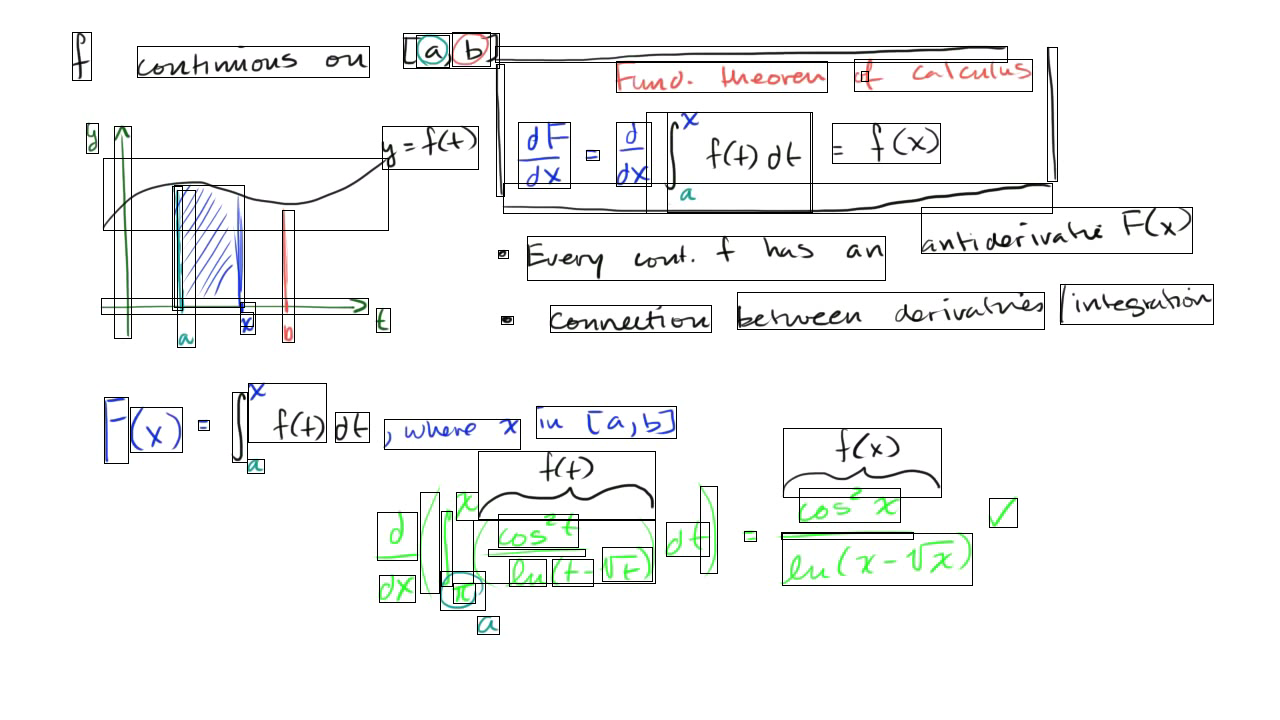 f continuous on [a,b]
Fund. theorem of calculus
y
y = f(t)
dF/dx = d/dx ∫_a^x f(t) dt = f(x)
• Every cont. f has an antiderivative F(x)
a x b t
• Connection between derivatives / integration
F(x) = ∫_a^x f(t) dt , where x in [a,b]
f(t) f(x)
d/dx ( ∫_π^x ( cos² t / ln(t-√t) ) dt ) = cos² x / ln(x-√x) ✓
a